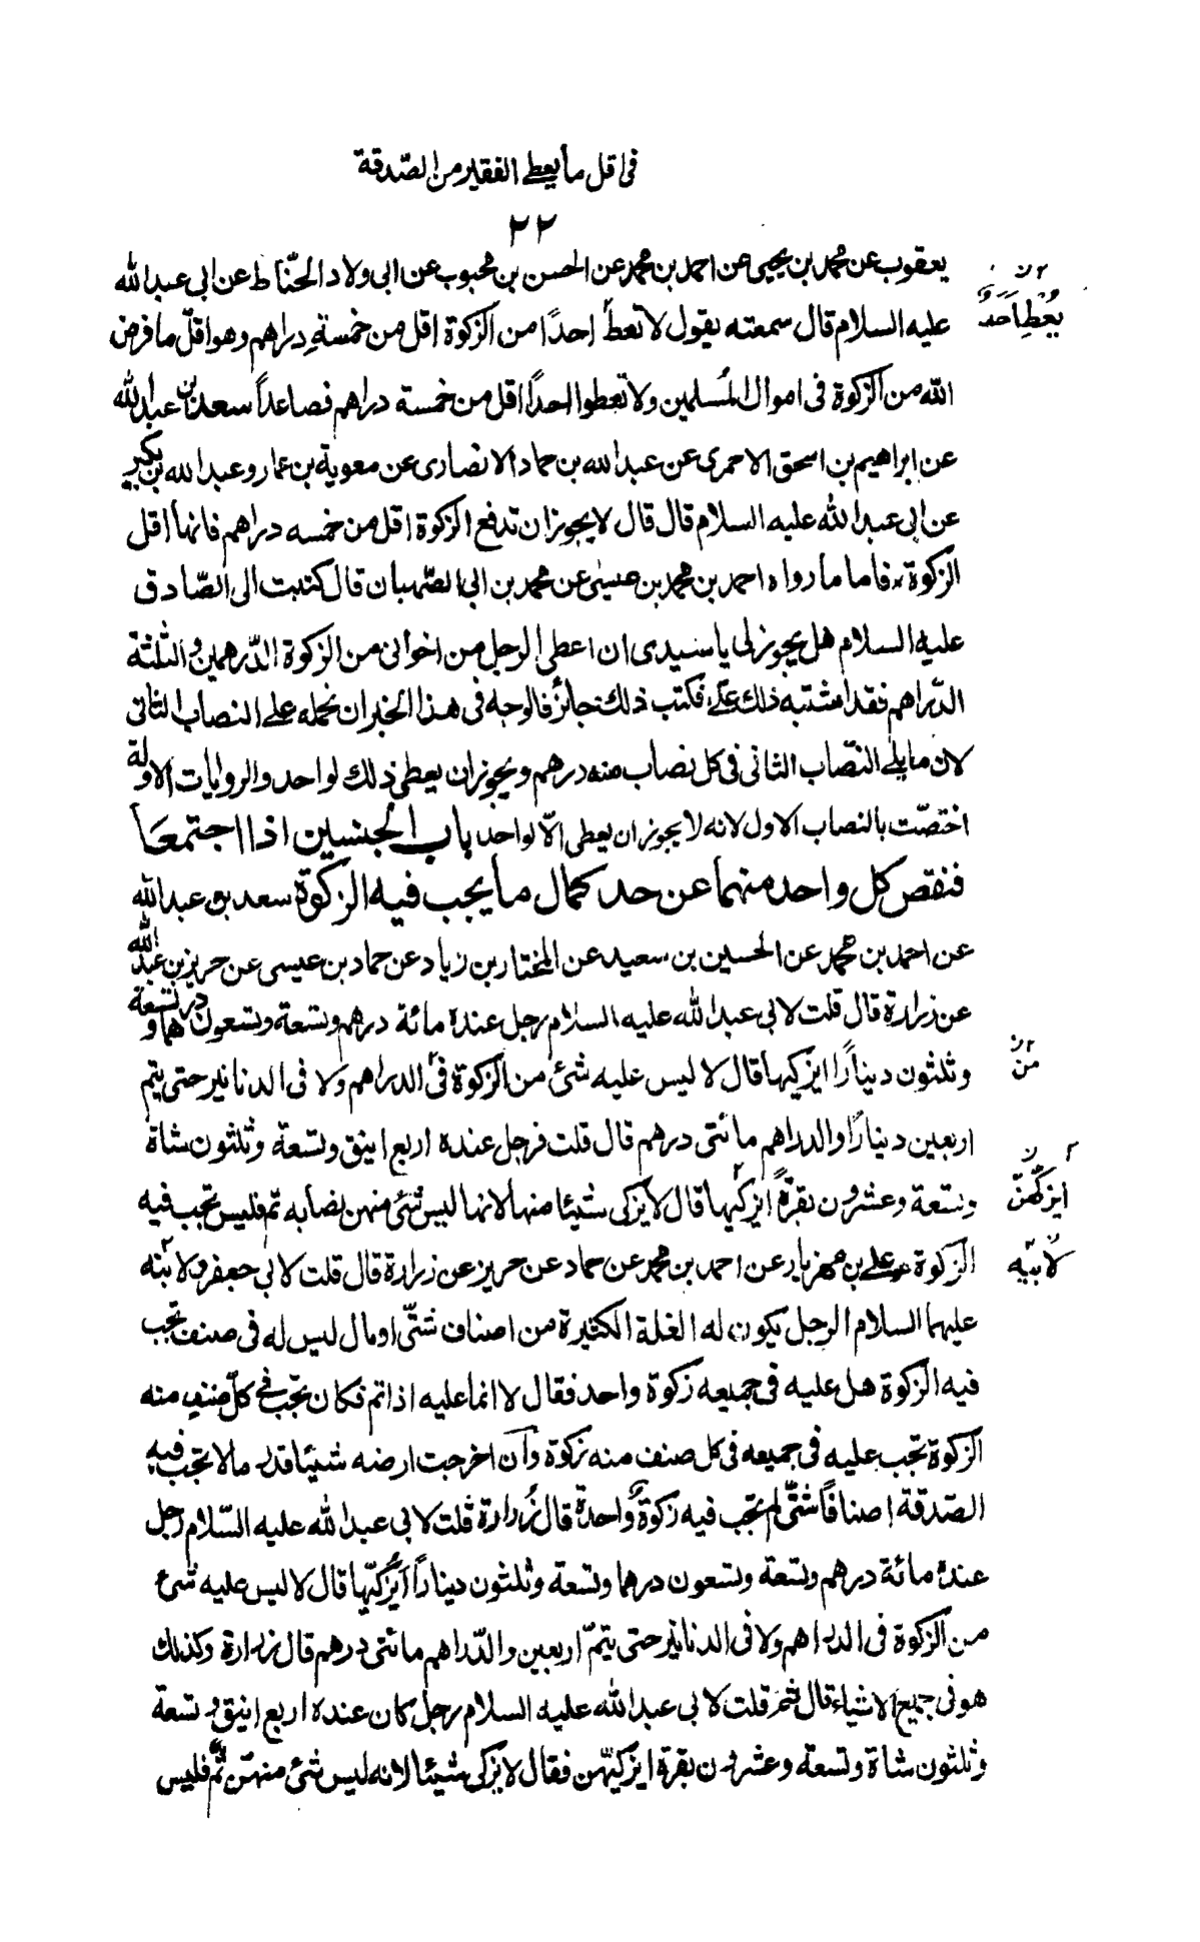 فى اقل ما يعطى الفقير من الصّدقة
٢٢
يعقوب عن محمد بن يحيى عن احمد بن محمد عن الحسن بن محبوب عن ابى ولاد الحنّاط عن ابى عبد الله
عليه السلام قال سمعته يقول لا تعط احدًا من الزكوة اقل من خمسةِ دراهم وهو اقلّ ما فرض
يعُطِ اَحَدٌ
الله من الزكوة فى اموال المُسلمين ولا تعطوا احدًا اقل من خمسة دراهم فصاعداً سعد بن عبد الله
عن ابراهيم بن اسحق الاحمرى عن عبد الله بن حماد الانصارى عن معوية بن عمار وعبد الله بن بكير
عن ابى عبد الله عليه السلام قال قال لا يجوز ان تدفع الزكوة اقل من خمسه دراهم فانها اقل
الزكوة فاما ما رواه احمد بن محمد بن عيسٰى عن محمد بن ابى الصّهبان قال كتبت الى الصّادق
عليه السلام هل يجوز لى يا سيدى ان اعطى الرجل من اخوانى من الزكوة الدّرهمين والثلثة
الدّراهم فقد اشتبه ذلك علىّ فكتب ذلك جائز فالوجه فى هذا الخبر ان نحمله على النصاب الثانى
لان ما يلى النصّاب الثانى فى كل نصاب منه درهم ويجوز ان يعطى ذلك لواحد والروايات الاولة
اختصّت بالنصاب الاول لانه لا يجوز ان يعطى الّا لواحد باب الجنسين اذا اجتمعا
فنقص كل واحد منهما عن حد كمال ما يجب فيه الزكوة سعد بن عبد الله
عن احمد بن محمد عن الحسين بن سعيد عن المختار بن زياد عن حماد بن عيسى عن حريز بن عبد الله
عن زرارة قال قلت لابى عبد الله عليه السلام رجل عنده مائة درهم وتسعة وتسعون درهما وتسعة
من
وثلثون دينارًا ايزكيها قال لا ليس عليه شئ من الزكوة فى الدراهم ولا فى الدنانير حتى يتم
اربعين دينارًا والدراهم مائتى درهم قال قلت فرجل عنده اربع اينق وتسعة وثلثون شاة
ايزكّهنّ
وتسعة وعشرون بقرةً ايزكيها قال لا يزكى شيئا منها لانها ليس شئ منهن نصابه تم فليس تجب فيه
لابنَيْه
الزكوة على بن مهزيار عن احمد بن محمد عن حماد عن حريز عن زرارة قال قلت لابى جعفر ولابنه
عليهما السلام الرجل يكون له الغلة الكثيرة من اصناف شتّى او مال ليس له فى صنف تجب
فيه الزكوة هل عليه فى جميعه زكوة واحد فقال لا انما عليه اذا تم فكان تجب فى كلّ صنفٍ منه
الزكوة تجب عليه فى جميعه فى كل صنف منه زكوة وان اخرجت ارضه شيئا قدر ما لا تجب فيه
الصّدقة اصنافًا شتّى لم تجب فيه زكوة واحدة قال زُرارة قلت لابى عبد الله عليه السّلام رجل
عنده مائة درهم وتسعة وتسعون درهما وتسعة وثلثون دينارًا ايُزكيّها قال لا ليس عليه شئ
من الزكوة فى الدراهم ولا فى الدنانير حتى يتمّ اربعين والدّراهم مائتى درهم قال زرارة وكذلك
هو فى جميع الاشياء قال ثم قلت لابى عبد الله عليه السلام رجل كان عنده اربع اينق وتسعة
وثلثون شاة وتسعة وعشرون بقرة ايزكيّهن فقال لا يزكى شيئا لانه ليس شئ منهنّ تمّ فليس